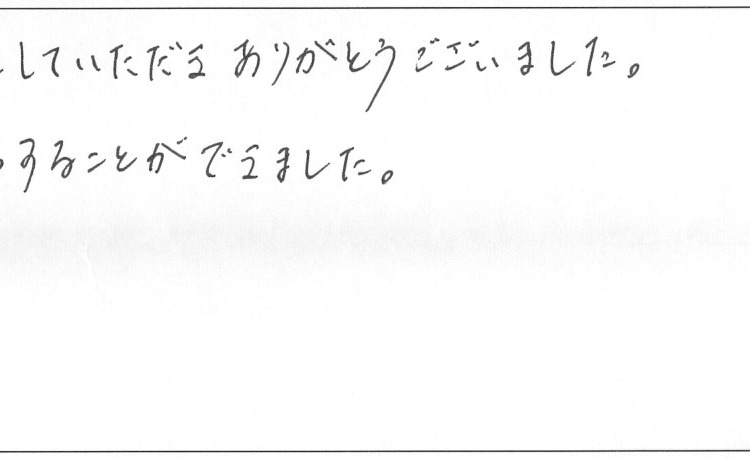 していただき ありがとうございました。
することができました。